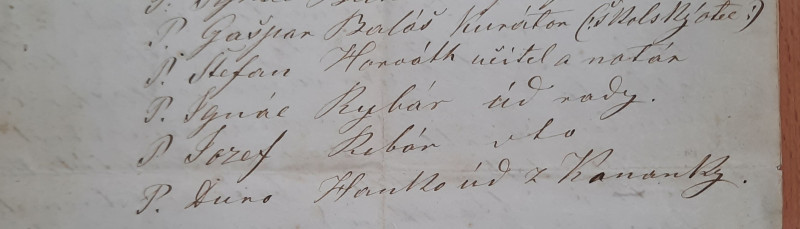 P. Gašpar Baláš Kurátor (: Školský otec :)
P. Štefan Horváth učitel a notár
P. Ignác Rybár úd rady.
P. Jozef Ribár dto
P. Duro Hanko úd z Kananky.